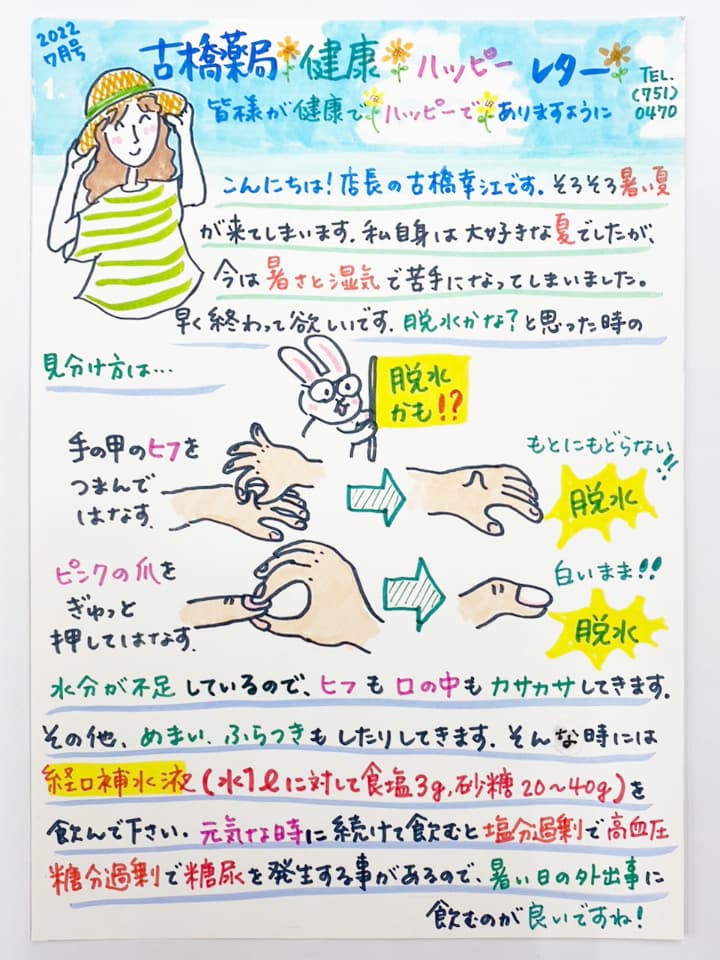 2022
7月号
1.
古橋薬局 健康 ハッピー レター
TEL.
(751)
0470
皆様が健康でハッピーでありますように
こんにちは!店長の古橋幸江です。そろそろ暑い夏
が来てしまいます。私自身は大好きな夏でしたが、
今は暑さと湿気で苦手になってしまいました。
早く終わって欲しいです。脱水かな?と思った時の
見分け方は…
脱水
かも!?
手の甲のヒフを
つまんで
はなす。
もとにもどらない!!
脱水
ピンクの爪を
ぎゅっと
押してはなす。
白いまま!!
脱水
水分が不足しているので、ヒフも口の中もカサカサしてきます。
その他、めまい、ふらつきもしたりしてきます。そんな時には
経口補水液(水1ℓに対して食塩3g,砂糖20〜40g)を
飲んで下さい。元気な時に続けて飲むと塩分過剰で高血圧
糖分過剰で糖尿を発生する事があるので、暑い日の外出事に
飲むのが良いですね!